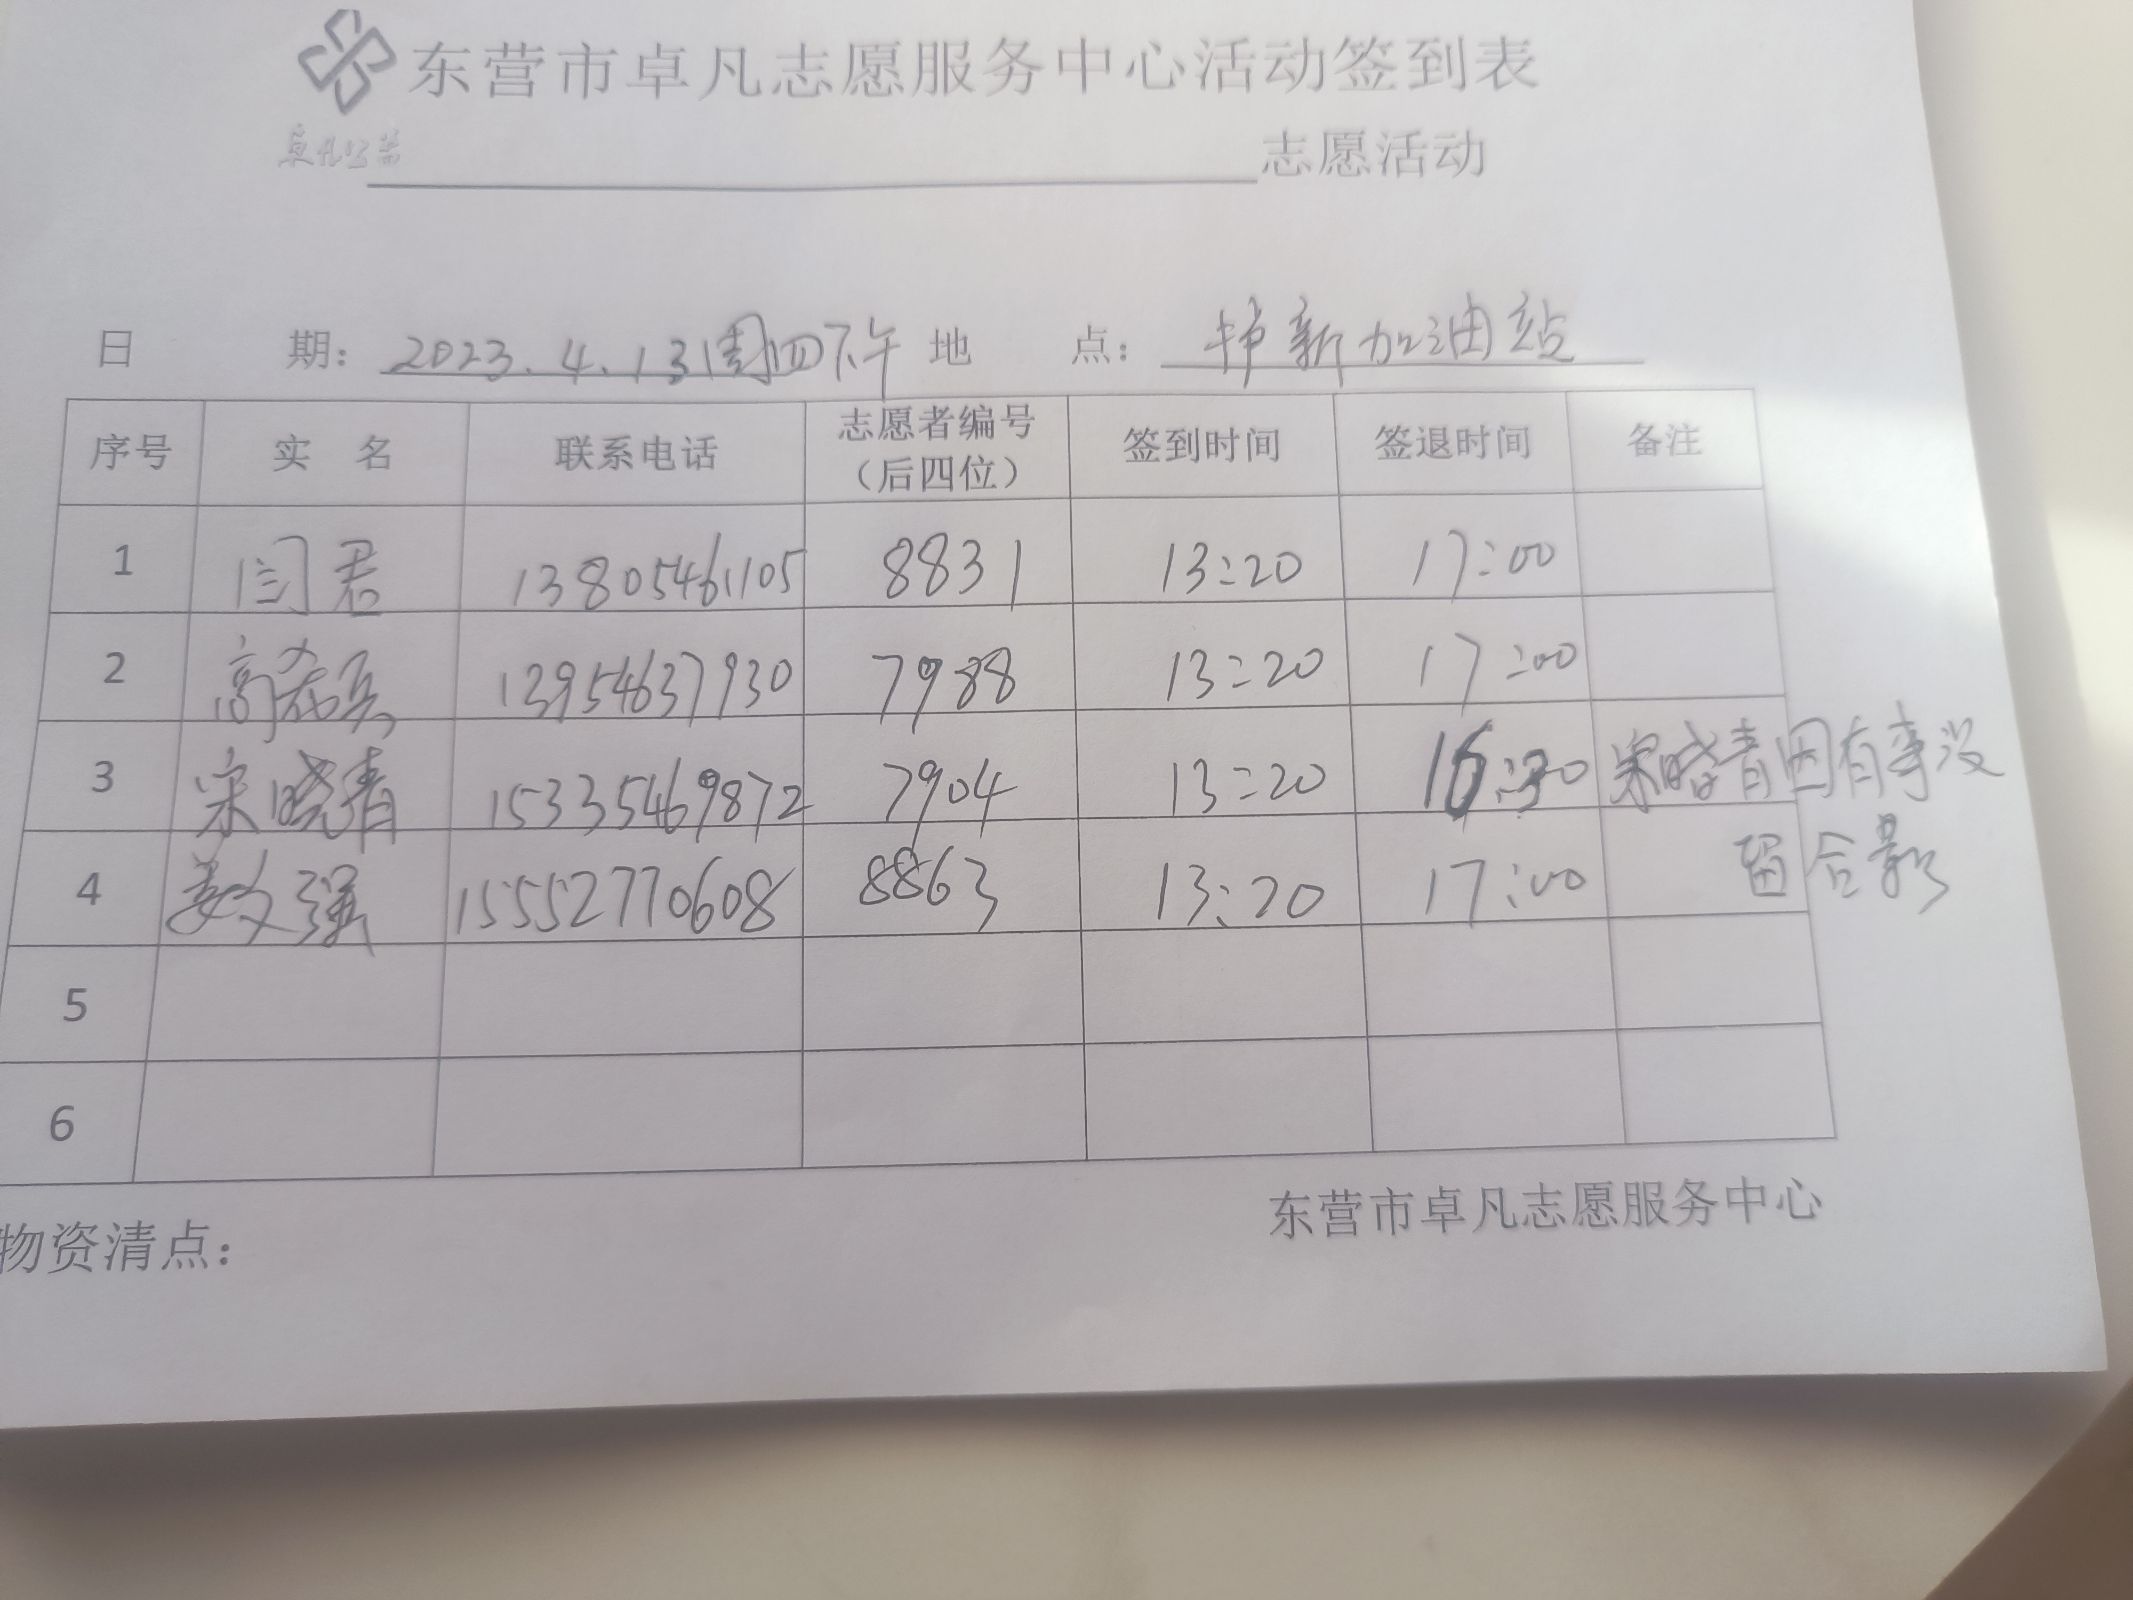 东营市卓凡志愿服务中心活动签到表
卓凡公益
志愿活动
日 期: 2023.4.13周四下午 地 点: 新加油站
序号 实 名 联系电话 志愿者编号（后四位） 签到时间 签退时间 备注
1 闫君 13805461105 8831 13:20 17:00
2 高 13954637930 7988 13:20 17:00
3 宋晓青 15335469872 7904 13:20 16:30 宋晓青因有事没
留合影
4 姜文强 15552770608 8863 13:20 17:00
5
6
东营市卓凡志愿服务中心
物资清点: